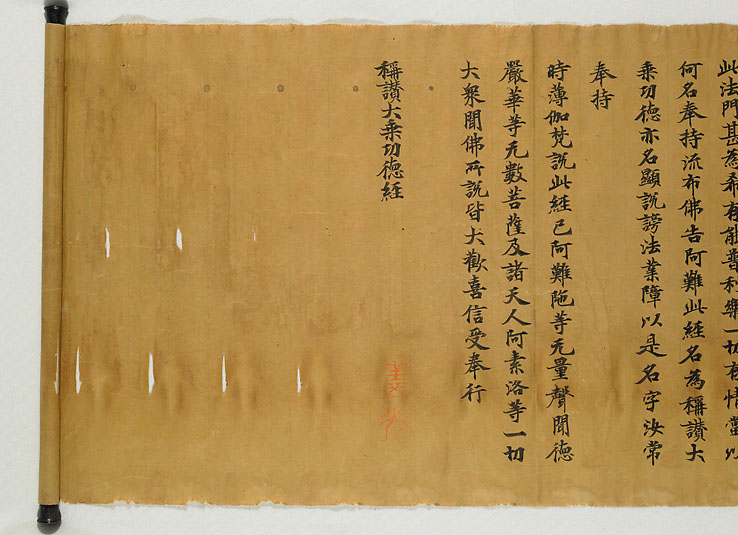 此法門甚為希有能普利樂一切有情當以
何名奉持流布佛告阿難此經名為稱讚大
乘功德亦名顯說謗法業障以是名字汝常
奉持
時薄伽梵說此經已阿難陁等无量聲聞德
嚴華等无數菩薩及諸天人阿素洛等一切
大眾聞佛所說皆大歡喜信受奉行
稱讚大乘功德經